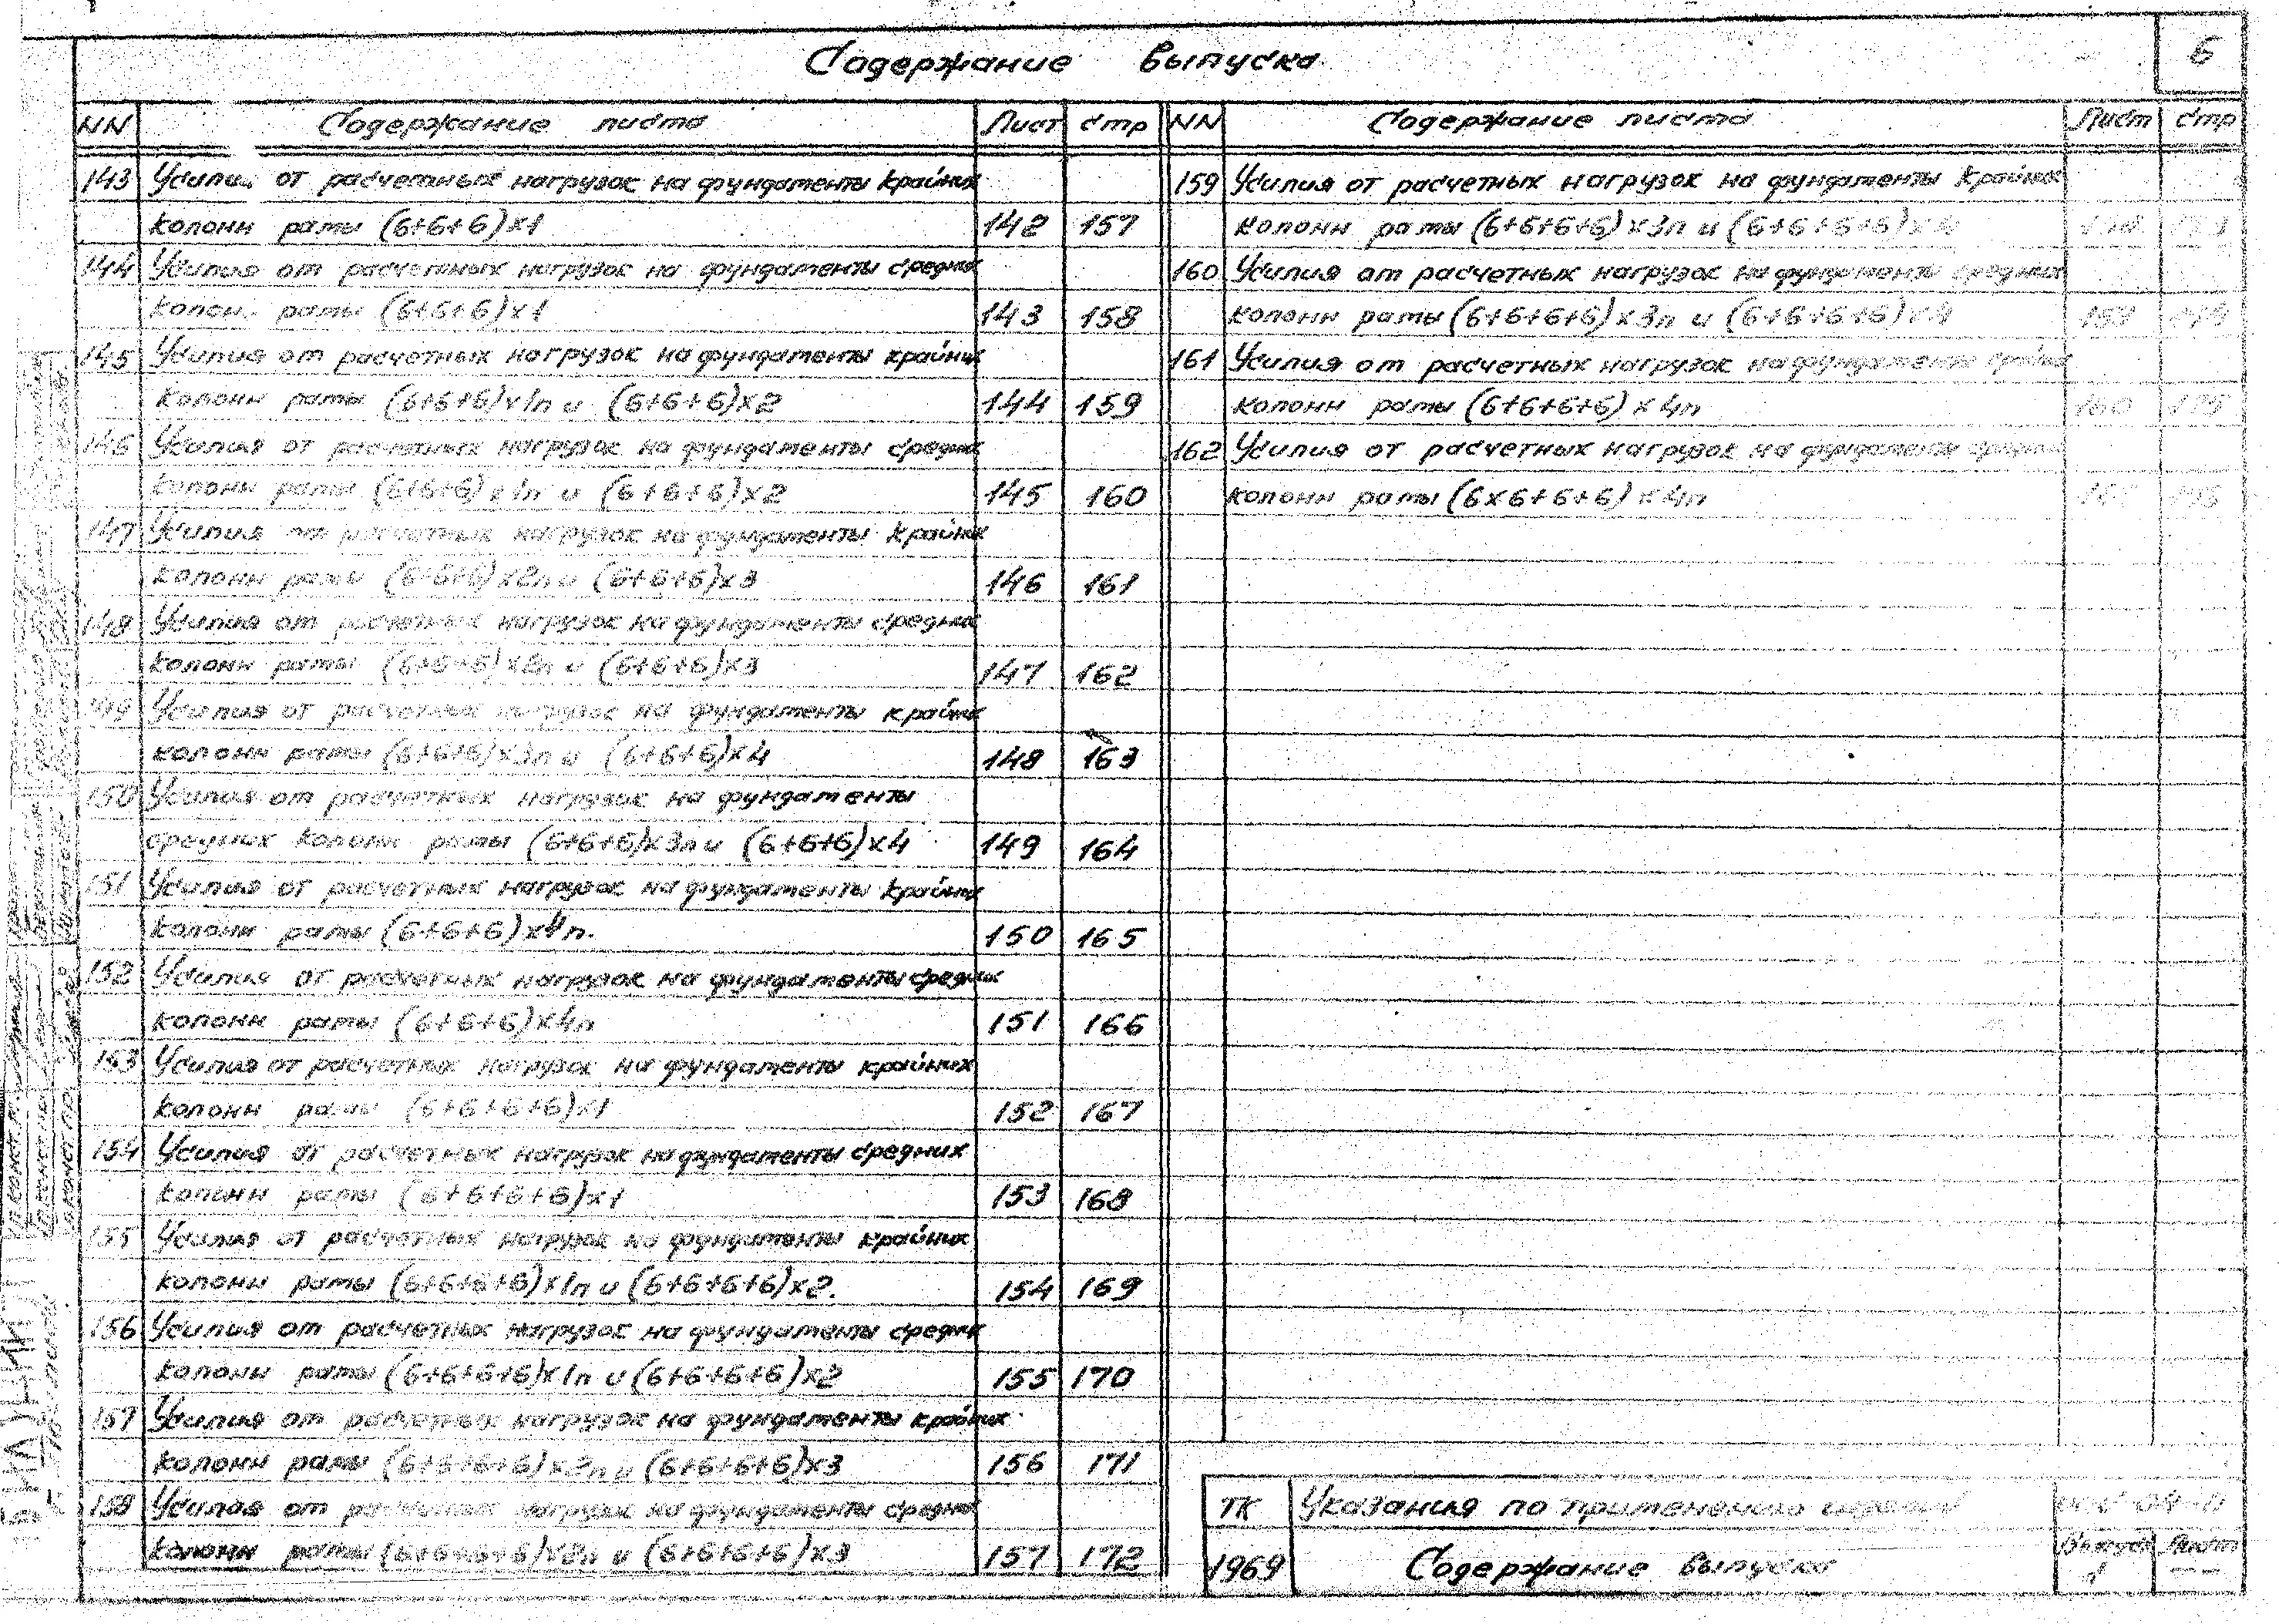 Содержание выпуска
6
NN Содержание листа Лист стр
143 Усилия от расчетных нагрузок на фундаменты крайних
колонн рамы (6+6+6)х1 142 157
144 Усилия от расчетных нагрузок на фундаменты средних
колон. рамы (6+6+6)х1 143 158
145 Усилия от расчетных нагрузок на фундаменты крайних
колонн рамы (6+6+6)х1п и (6+6+6)х2 144 159
146 Усилия от расчетных нагрузок на фундаменты средних
колонн рамы (6+6+6)х1п и (6+6+6)х2 145 160
147 Усилия от расчетных нагрузок на фундаменты крайних
колонн рамы (6+6+6)х2п и (6+6+6)х3 146 161
148 Усилия от расчетных нагрузок на фундаменты средних
колонн рамы (6+6+6)х2п и (6+6+6)х3 147 162
149 Усилия от расчетных нагрузок на фундаменты крайних
колонн рамы (6+6+6)х3п и (6+6+6)х4 148 163
150 Усилия от расчетных нагрузок на фундаменты
средних колонн рамы (6+6+6)х3п и (6+6+6)х4 149 164
151 Усилия от расчетных нагрузок на фундаменты крайних
колонн рамы (6+6+6)х4п. 150 165
152 Усилия от расчетных нагрузок на фундаменты средних
колонн рамы (6+6+6)х4п 151 166
153 Усилия от расчетных нагрузок на фундаменты крайних
колонн рамы (6+6+6+6)х1 152 167
154 Усилия от расчетных нагрузок на фундаменты средних
колонн рамы (6+6+6+6)х1 153 168
155 Усилия от расчетных нагрузок на фундаменты крайних
колонн рамы (6+6+6+6)х1п и (6+6+6+6)х2. 154 169
156 Усилия от расчетных нагрузок на фундаменты средних
колонн рамы (6+6+6+6)х1п и (6+6+6+6)х2 155 170
157 Усилия от расчетных нагрузок на фундаменты крайних
колонн рамы (6+6+6+6)х2п и (6+6+6+6)х3 156 171
158 Усилия от расчетных нагрузок на фундаменты средних
колонн рамы (6+6+6+6)х2п и (6+6+6+6)х3 157 172
NN Содержание листа Лист стр
159 Усилия от расчетных нагрузок на фундаменты крайних
колонн рамы (6+6+6+6)х3п и (6+6+6+6)х4
160 Усилия от расчетных нагрузок на фундаменты средних
колонн рамы (6+6+6+6)х3п и (6+6+6+6)х4 159
161 Усилия от расчетных нагрузок на фундаменты
колонн рамы (6+6+6+6)х4п 160 175
162 Усилия от расчетных нагрузок на фундаменты средних
колонн рамы (6х6+6+6)х4п
ТК Указания по применению
1969 Содержание выпуска Выпуск 1 Лист --